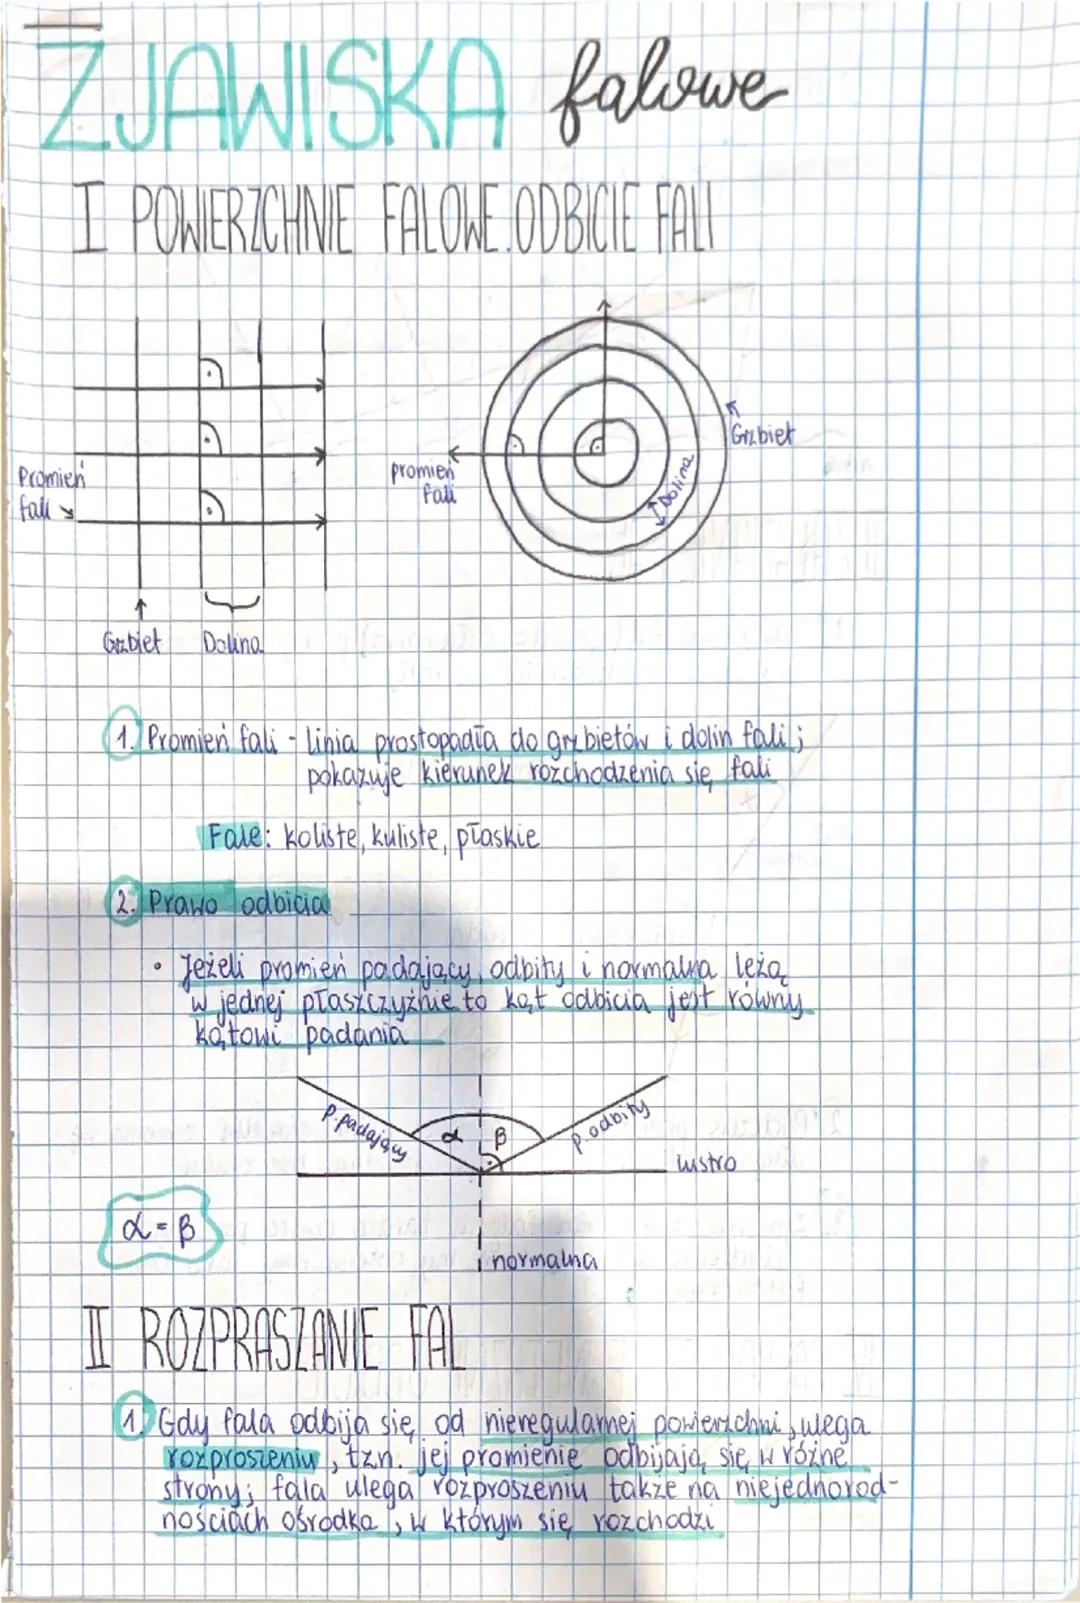 ZJAWISKA falowe
I POWIERZCHNIE FALOWE. ODBICIE FALI
Promień
fali
Grzbiet Dolina
promień
fali
Grzbiet
Dolina
1. Promień fali - linia prostopadła do grzbietów i dolin fali;
pokazuje kierunek rozchodzenia się fali
Fale: koliste, kuliste, płaskie
2. Prawo odbicia
• Jeżeli promień padający, odbity i normalna leżą
w jednej płaszczyźnie to kąt odbicia jest równy
kątowi padania
p. padający
α
β
p. odbity
lustro
α = β
normalna
II ROZPRASZANIE FAL
1. Gdy fala odbija się od nieregularnej powierzchni, ulega
rozproszeniu, tzn. jej promienie odbijają się w różne
strony; fala ulega rozproszeniu także na niejednorod-
nościach ośrodka, w którym się rozchodzi